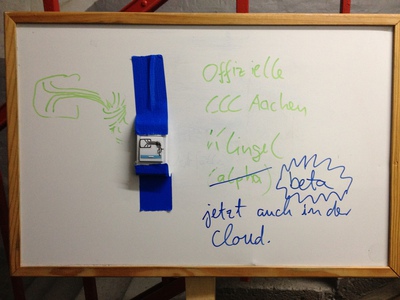 Offizielle
CCC Aachen
Klingel
(alpha) beta
jetzt auch in der
Cloud.